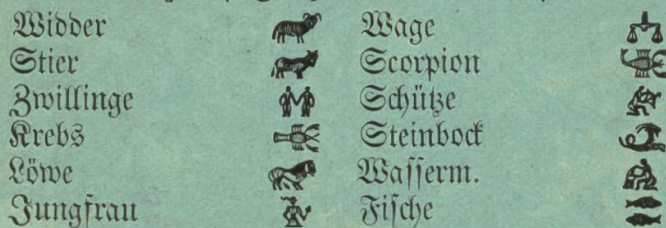 Widder
Stier
Zwillinge
Krebs
Löwe
Jungfrau
Wage
Scorpion
Schütze
Steinbock
Wasserm.
Fische